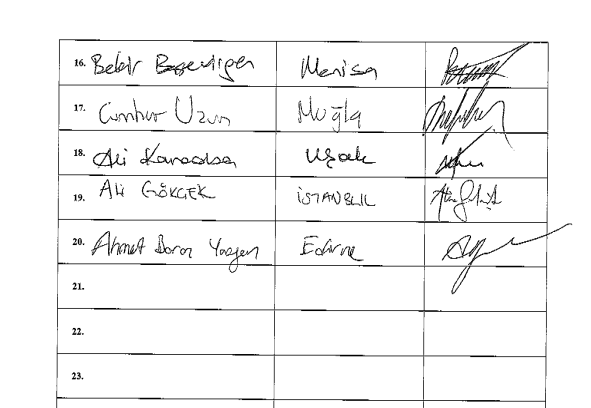 16. Bekir Başevirgen Manisa
17. Cumhur Uzun Muğla
18. Ali Karaoba Uşak
19. Ali GÖKÇEK İSTANBUL
20. Ahmet Baran Yazgan Edirne
21.
22.
23.